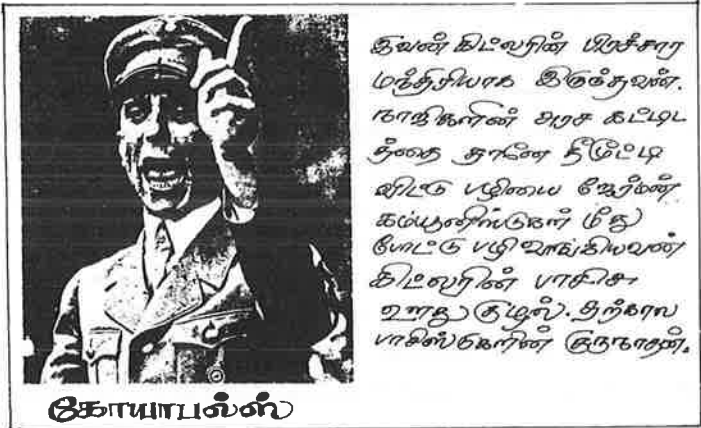 இவன் கிட்லரின் பிரச்சார
மந்திரியாக இருந்தவன்.
நாஜிகளின் அரச கட்டிட
த்தை தானே தீமூட்டி
விட்டு பழியை ஜேர்மன்
கம்யூனிஸ்டுகள் மீது
போட்டு பழி வாங்கியவன்
கிட்லரின் பாசிச
ஊது குழல். தற்கால
பாசிஸ்டுகளின் குருநாதன்.
கோயாபல்ஸ்